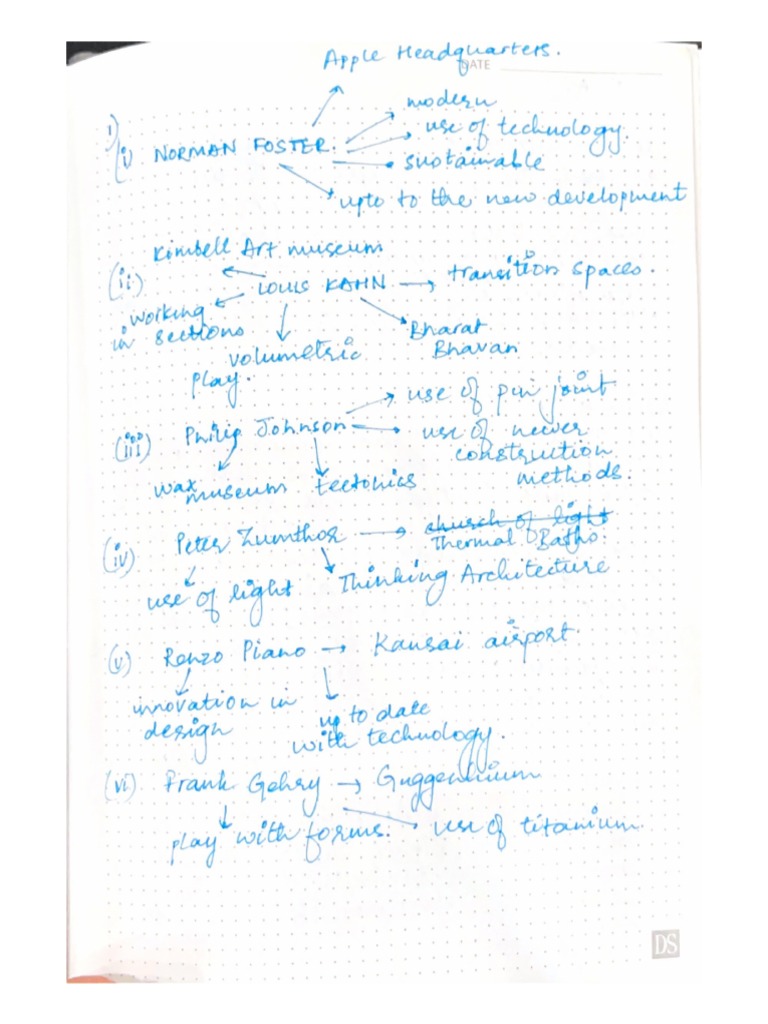 Apple Headquarters.
DATE
1)
modern
use of technology.
(i) NORMAN FOSTER.
sustainable
upto to the new development
Kimbell Art museum
(ii) LOUIS KAHN → transition spaces.
working
in sections
Bharat
Bhavan
volumetric
play.
use of pin joint
(iii) Philip Johnson
use of newer
construction
methods.
wax museum tectonics
(iv) Peter Zumthor → church of light
Thermal Baths.
use of light Thinking Architecture
(v) Renzo Piano → Kansai airport.
innovation in
design
up to date
with technology.
(vi) Frank Gehry → Guggenhium
play with forms. use of titanium.
DS